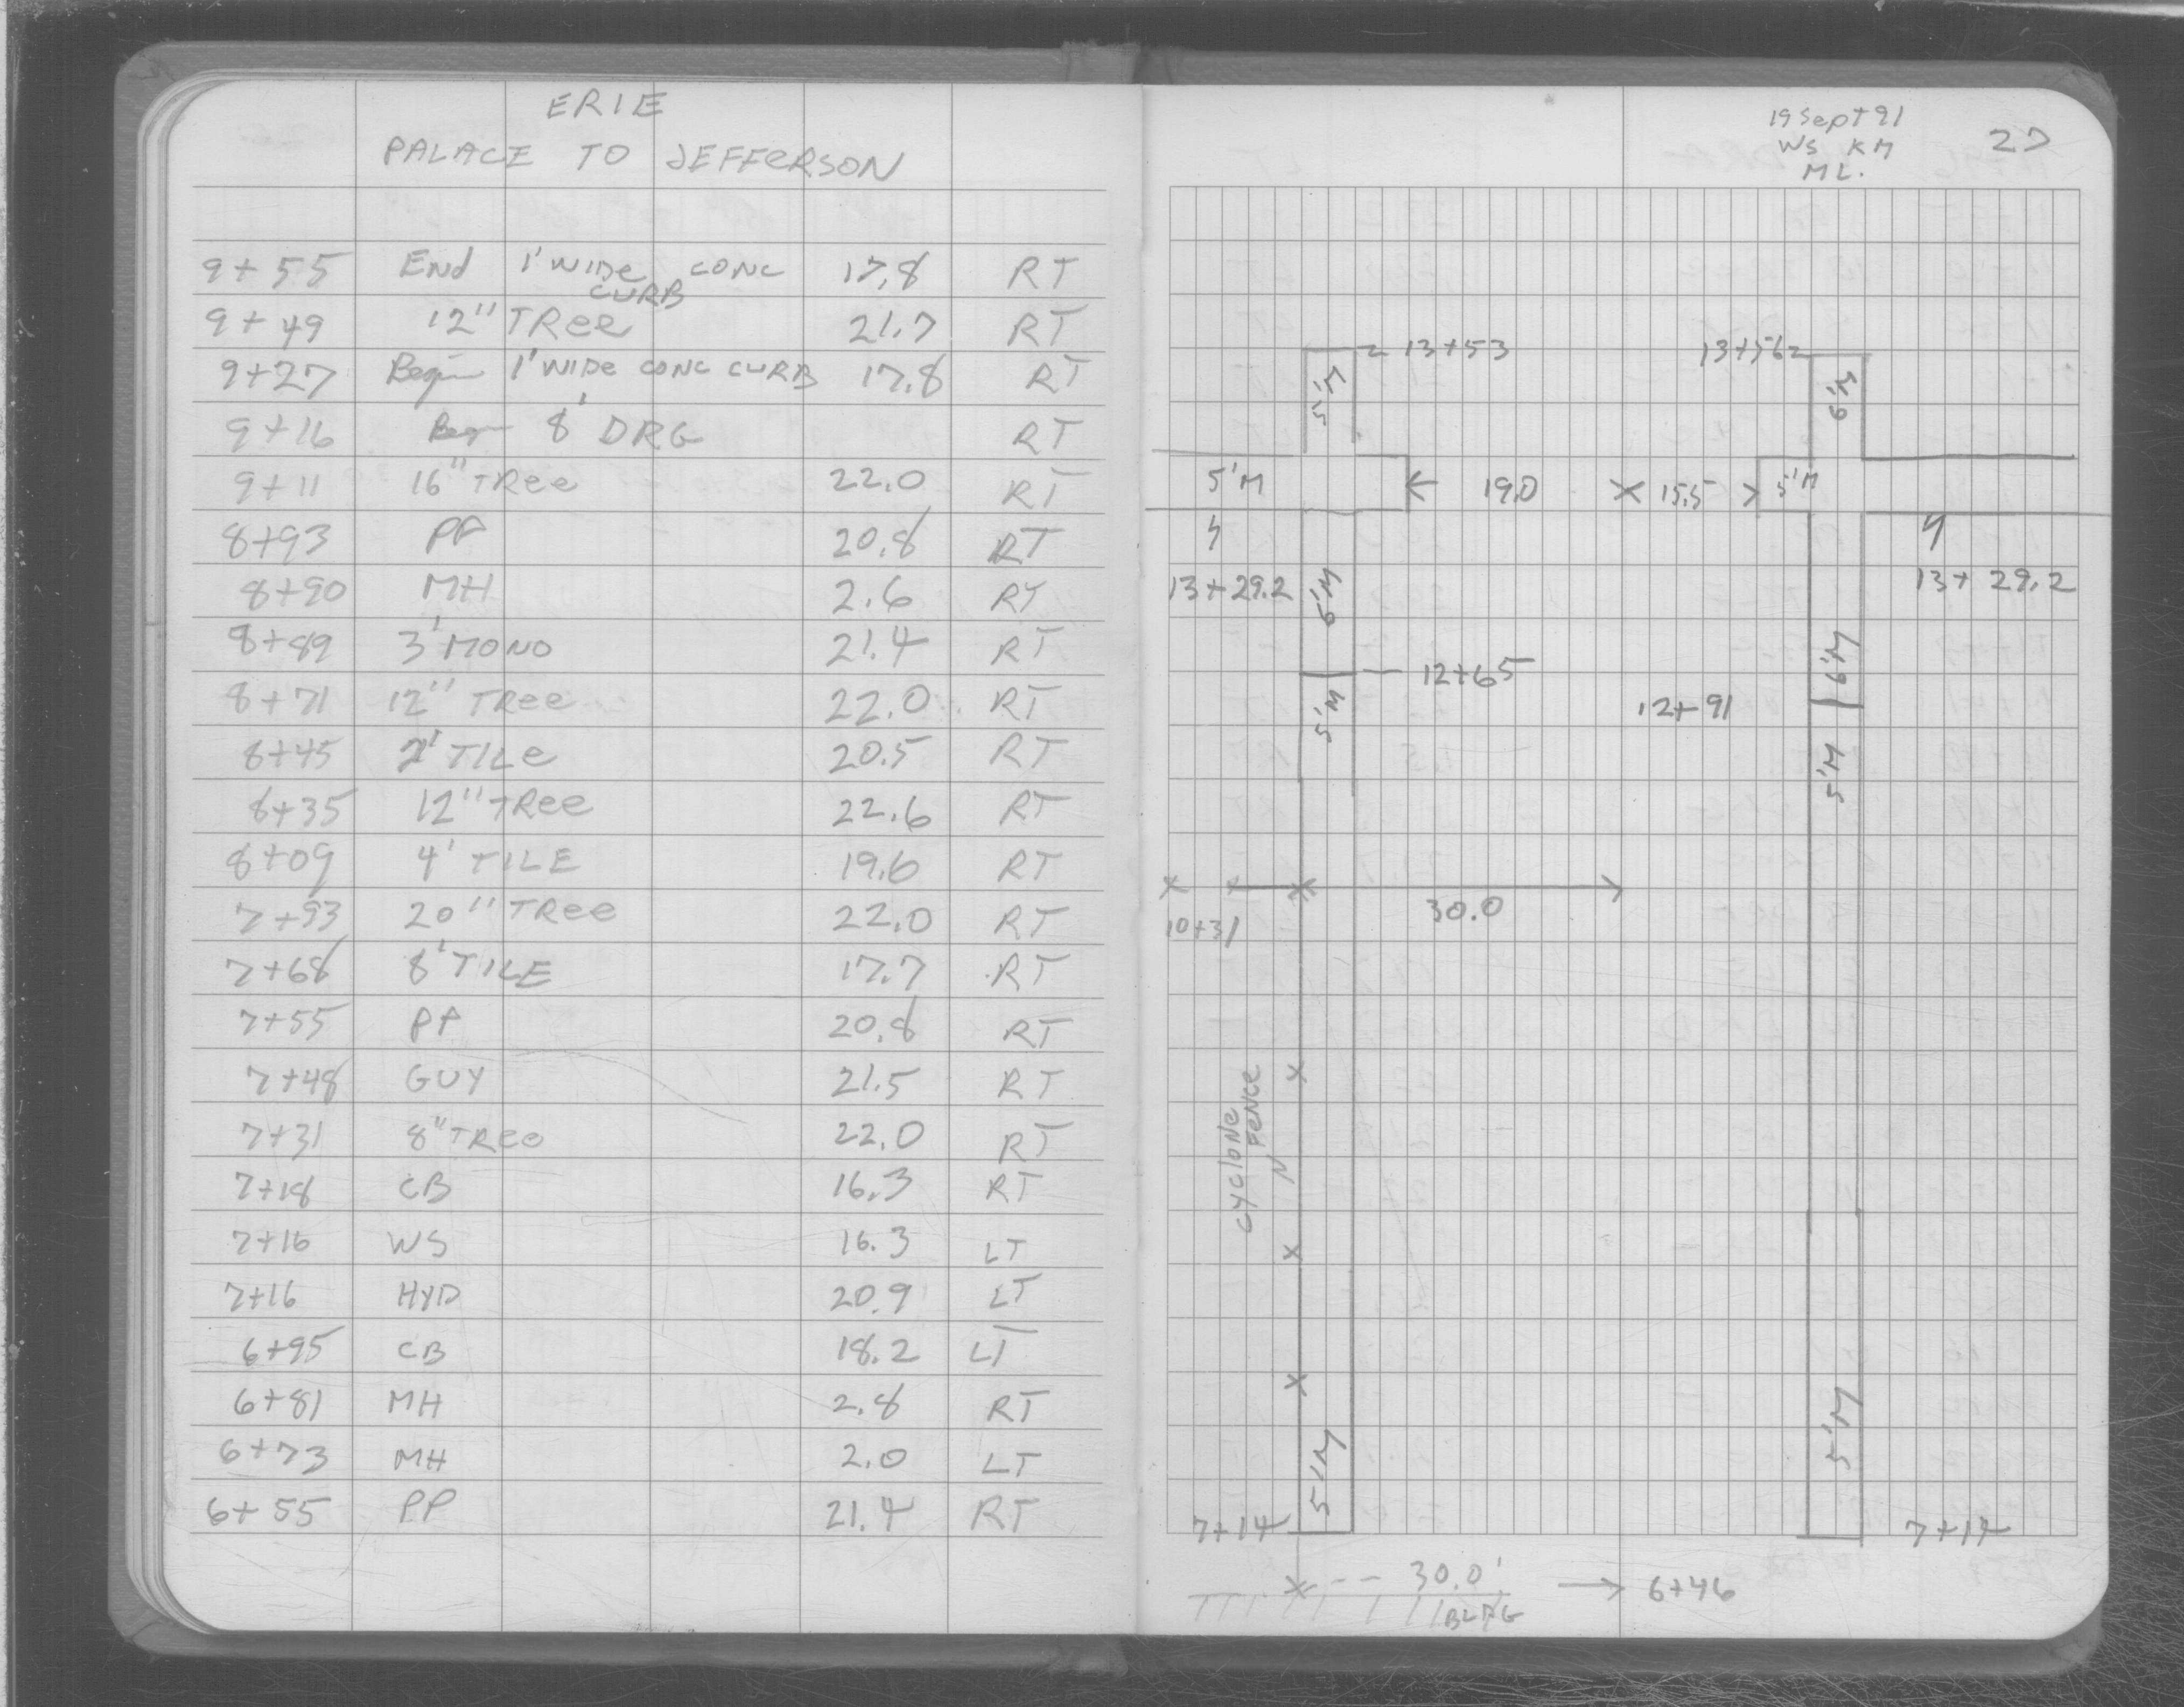 ERIE
PALACE TO JEFFERSON
9+55 End 1' WIDE CONC CURB 17.8 RT
9+49 12" TRee 21.7 RT
9+27 Begin 1' WIDE CONC CURB 17.8 RT
9+16 Beg 8' DRG RT
9+11 16" TRee 22.0 RT
8+93 PP 20.8 RT
8+90 MH 2.6 RT
8+89 3' MONO 21.4 RT
8+71 12" TRee 22.0 RT
8+45 2' TILe 20.5 RT
8+35 12" TRee 22.6 RT
8+09 4' TILE 19.6 RT
7+93 20" TRee 22.0 RT
7+68 8' TILE 17.7 RT
7+55 PP 20.8 RT
7+48 GUY 21.5 RT
7+31 8" TRee 22.0 RT
7+18 CB 16.3 RT
7+16 WS 16.3 LT
7+16 HYD 20.9 LT
6+95 CB 18.2 LT
6+81 MH 2.8 RT
6+73 MH 2.0 LT
6+55 PP 21.4 RT
19 Sept 91
WS KM
ML.
27
13+53 13+56
5'M 6'M
5'M 19.0 15.5 5'M
13+29.2 6'M 13+29.2
12+65 6'M
5'M 12+91
5'M
30.0
10+31
CYCLONE FENCE
5'M 5'M
7+14 7+14
30.0' 6+46
BLDG